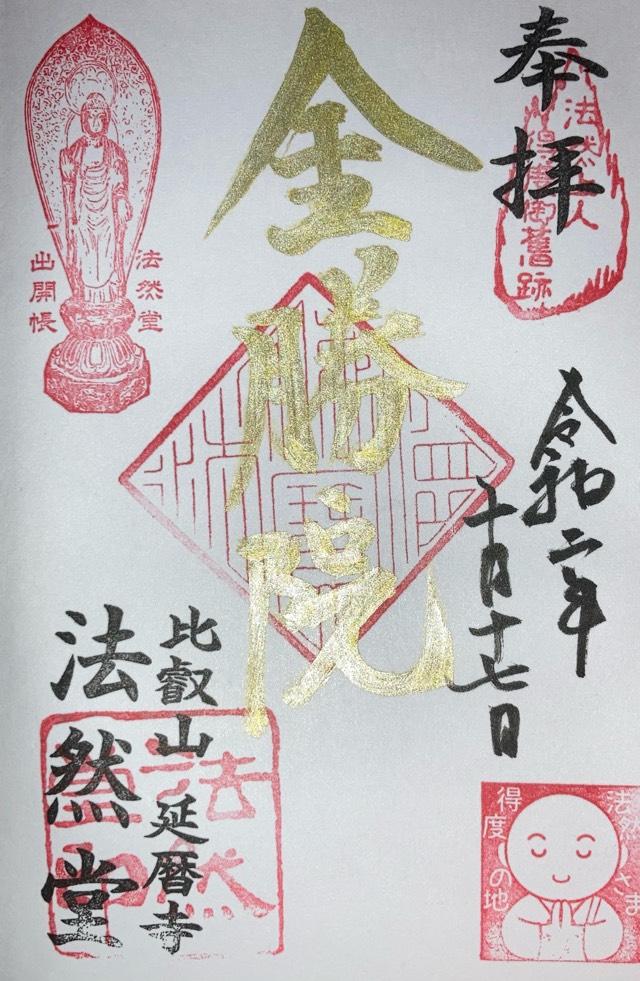 奉拝
法然上人
得度御舊跡
令和二年
十月十七日
金勝院
法然堂
出開帳
比叡山延暦寺
法然堂
法然
法然さま
得度の地